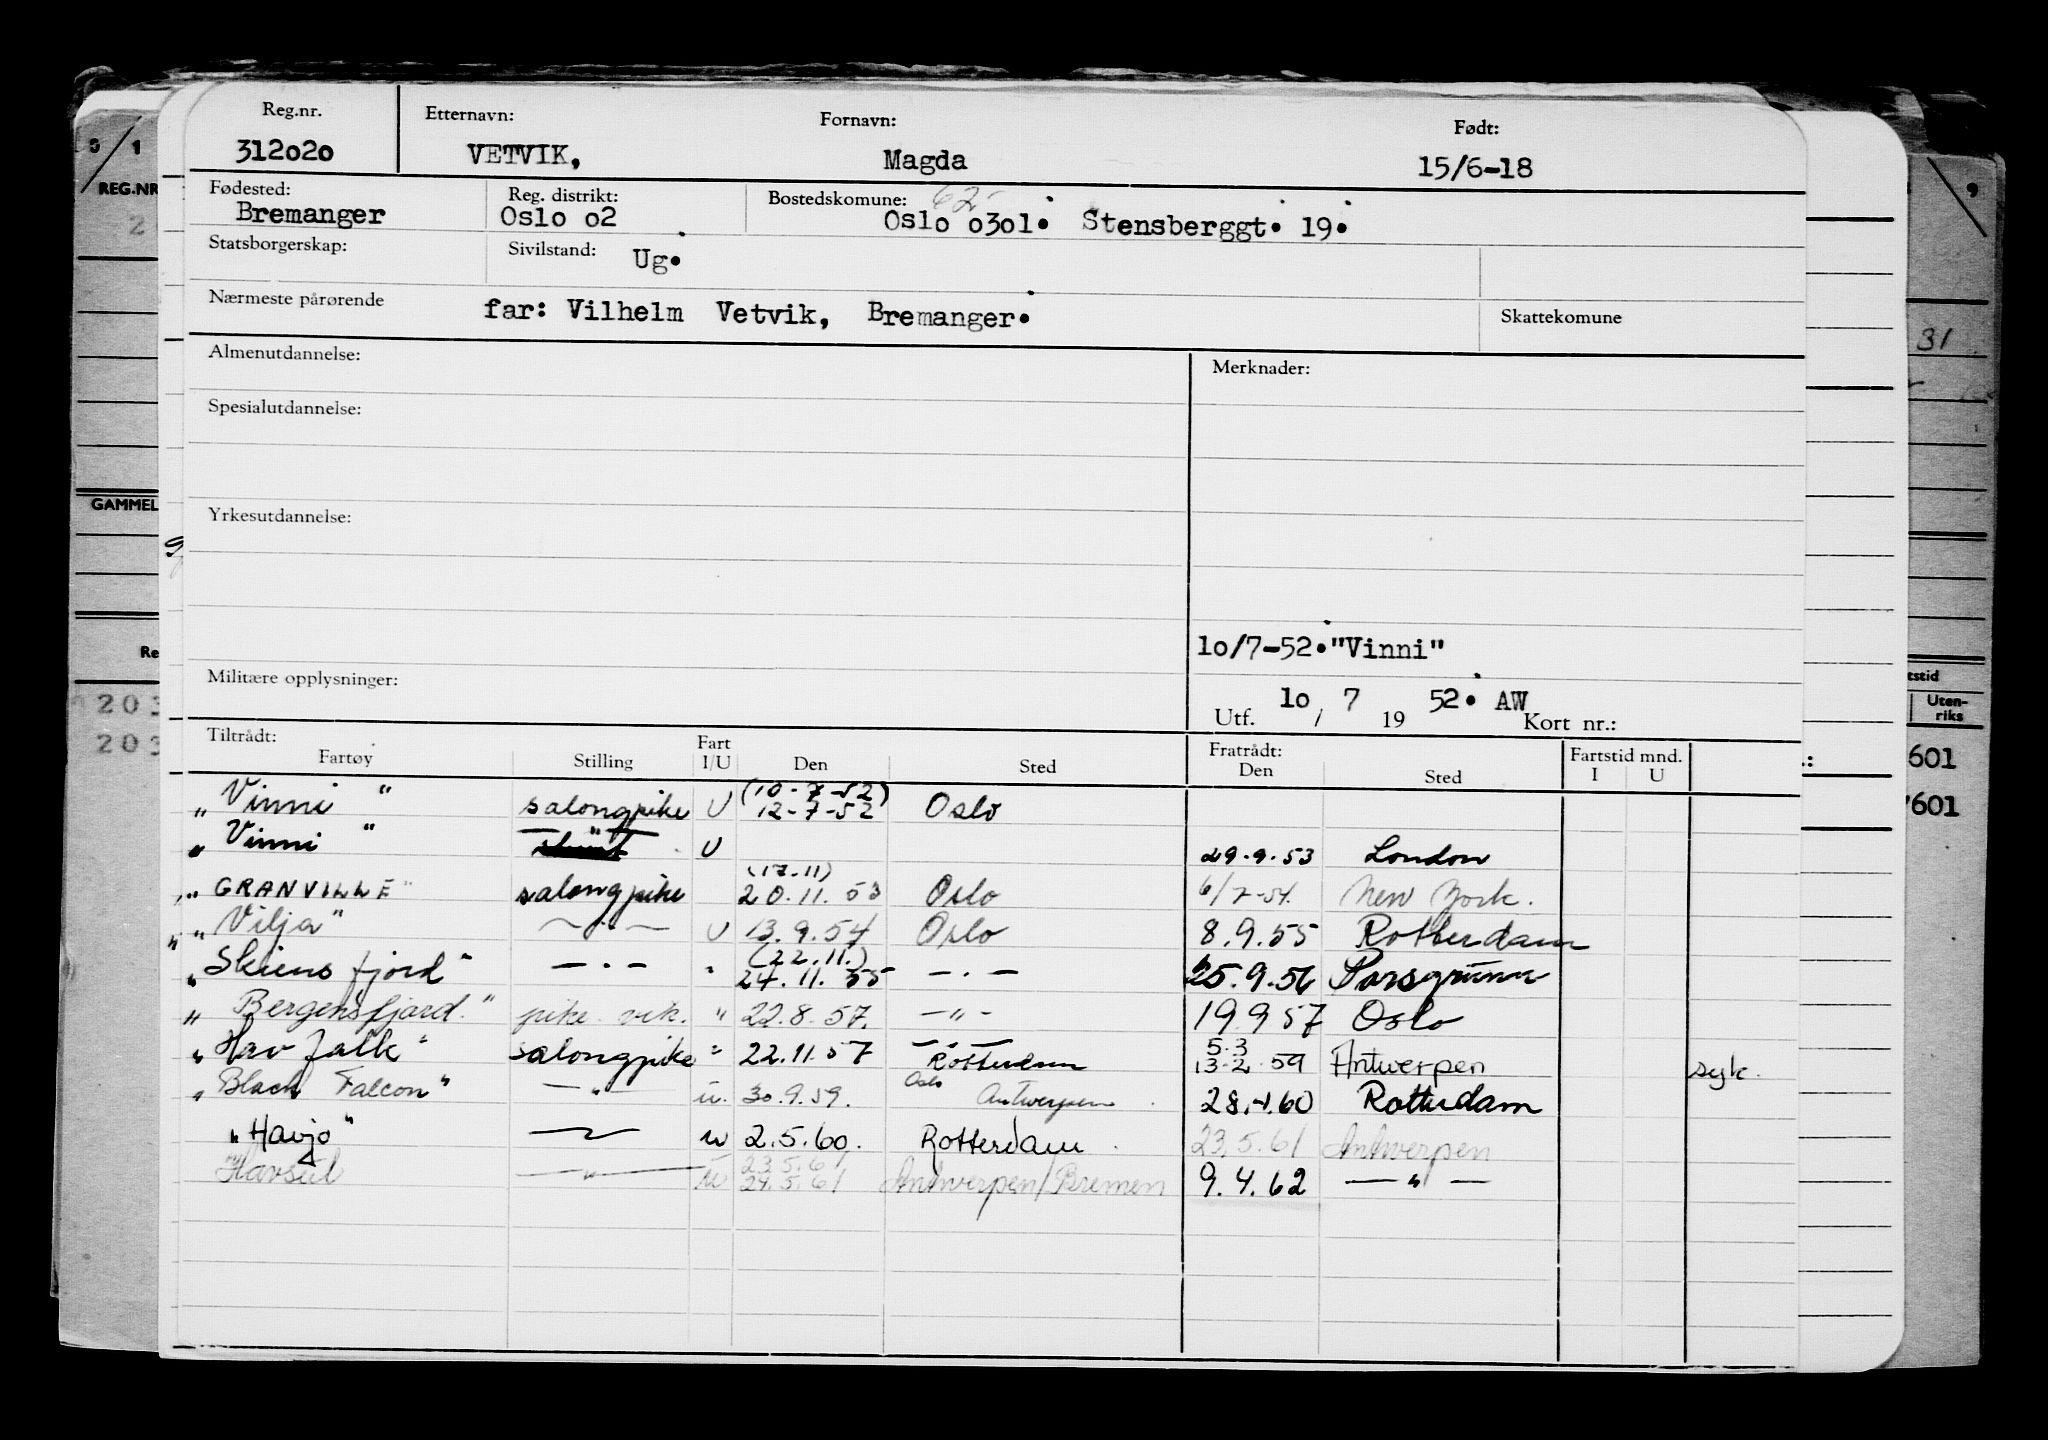 Reg.nr. Etternavn: Fornavn: Født:
312020 VETVIK, Magda 15/6-18
Fødested: Reg. distrikt: Bostedskomune: 62
Bremanger Oslo o2 Oslo o3o1. Stensberggt. 19.
Statsborgerskap: Sivilstand: Ug.
Nærmeste pårørende far: Vilhelm Vetvik, Bremanger. Skattekomune
Almenutdannelse: Merknader:
Spesialutdannelse:
Yrkesutdannelse:
lo/7-52."Vinni"
Militære opplysninger:
Utf. lo / 7 19 52. AW Kort nr.:
Tiltrådt: Fratrådt:
Fartøy Stilling Fart I/U Den Sted Den Sted Fartstid mnd. I U
"Vinni" salongpike U (10-7-52) 12-7-52 Oslo
"Vinni" — " — U 29.9.53 London
"GRANVILLE" salongpike (17.11) 20.11.53 Oslo 6/7-54. New York.
"Vilja" — . — U 13.9.54 Oslo 8.9.55 Rotterdam
"Skiensfjord" — . — " (22.11.) 24.11.55 — . — 25.9.56 Porsgrunn
"Bergensfjord." pike vik. " 22.8.57. — " — 19 9 57 Oslo
"Hav falk" salongpike " 22.11.57 — " — Rotterdam 5.3 13.2.59 Antwerpen syk.
"Black Falcon" — " — u. 30.9.59. Oslo Antwerpen 28.4.60 Rotterdam
"Havjo" — " — u 2.5.60. Rotterdam. 23.5.61 Antwerpen
"Havsul — " — u 23.5.61 24.5.61 Antwerpen/Bremen 9.4.62 — " —
REG.NR
GAMMEL
Re
203
203
9
31
tstid
Uten-
riks
601
601